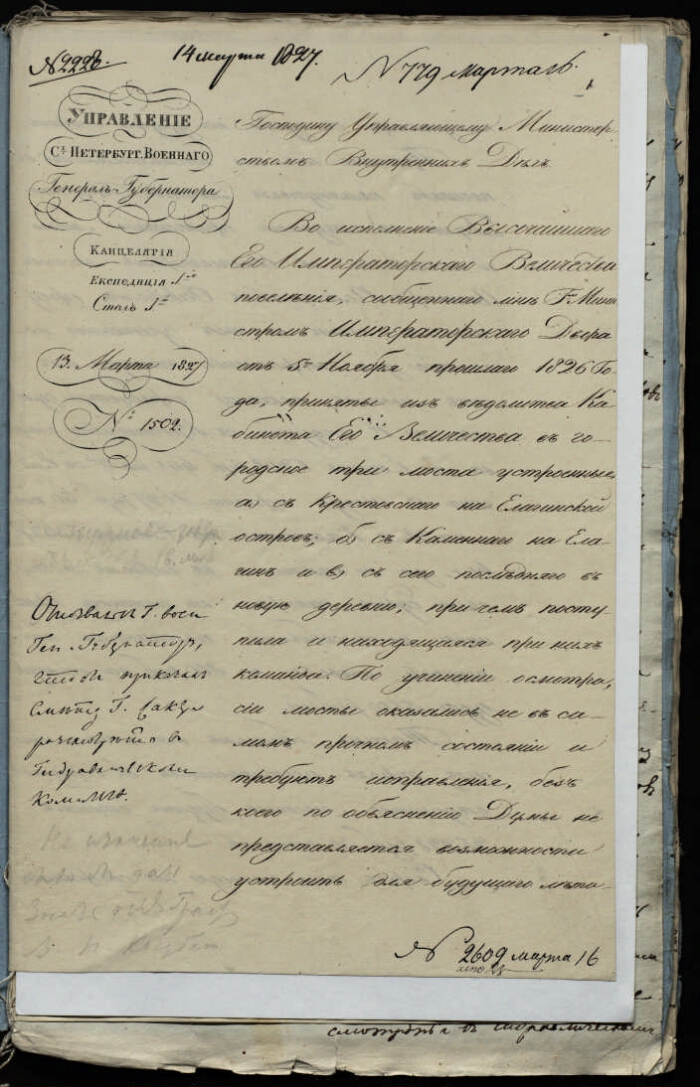 № 2228.
14 марта 1827.
№ 779 марта 16.
Управленіе
Сᵗ. Петербург. Военнаго
Генералъ-Губернатора
Канцелярія
Експедиція 1ᵃ
Столъ 1ᵗ
13. Марта 1827
№ 1502.
Господину Управляющему Министер-
ствомъ Внутреннихъ Дѣлъ.
Во исполненіе Высочайшаго
Его Императорскаго Величества
повелѣнія, сообщеннаго мнѣ Г. Мини
стромъ Императорскаго Двора
отъ 5го Ноября прошлаго 1826 Го-
да, приняты изъ вѣдомства Ка-
бинета Его Величества въ го-
родское три моста устроенные,
а) съ Крестовскаго на Елагинской
островъ; б) съ Каменнаго на Ела-
гинъ и в) съ сего послѣдняго въ
новую деревню; при чемъ посту-
пила и находящаяся при нихъ
команда. По учиненіи осмотра,
сіи мосты оказались не въ са-
момъ прочномъ состояніи и
требуютъ исправленія, безъ
коего по объясненію Думы не
представляется возможности
устроить для будущаго лѣта
Г. воен
Ген. Губернаторъ,
приказалъ
Г.
въ
Гидравлическом
Комит.
№ 2609 марта 16
смотрѣть въ гидравлическомъ